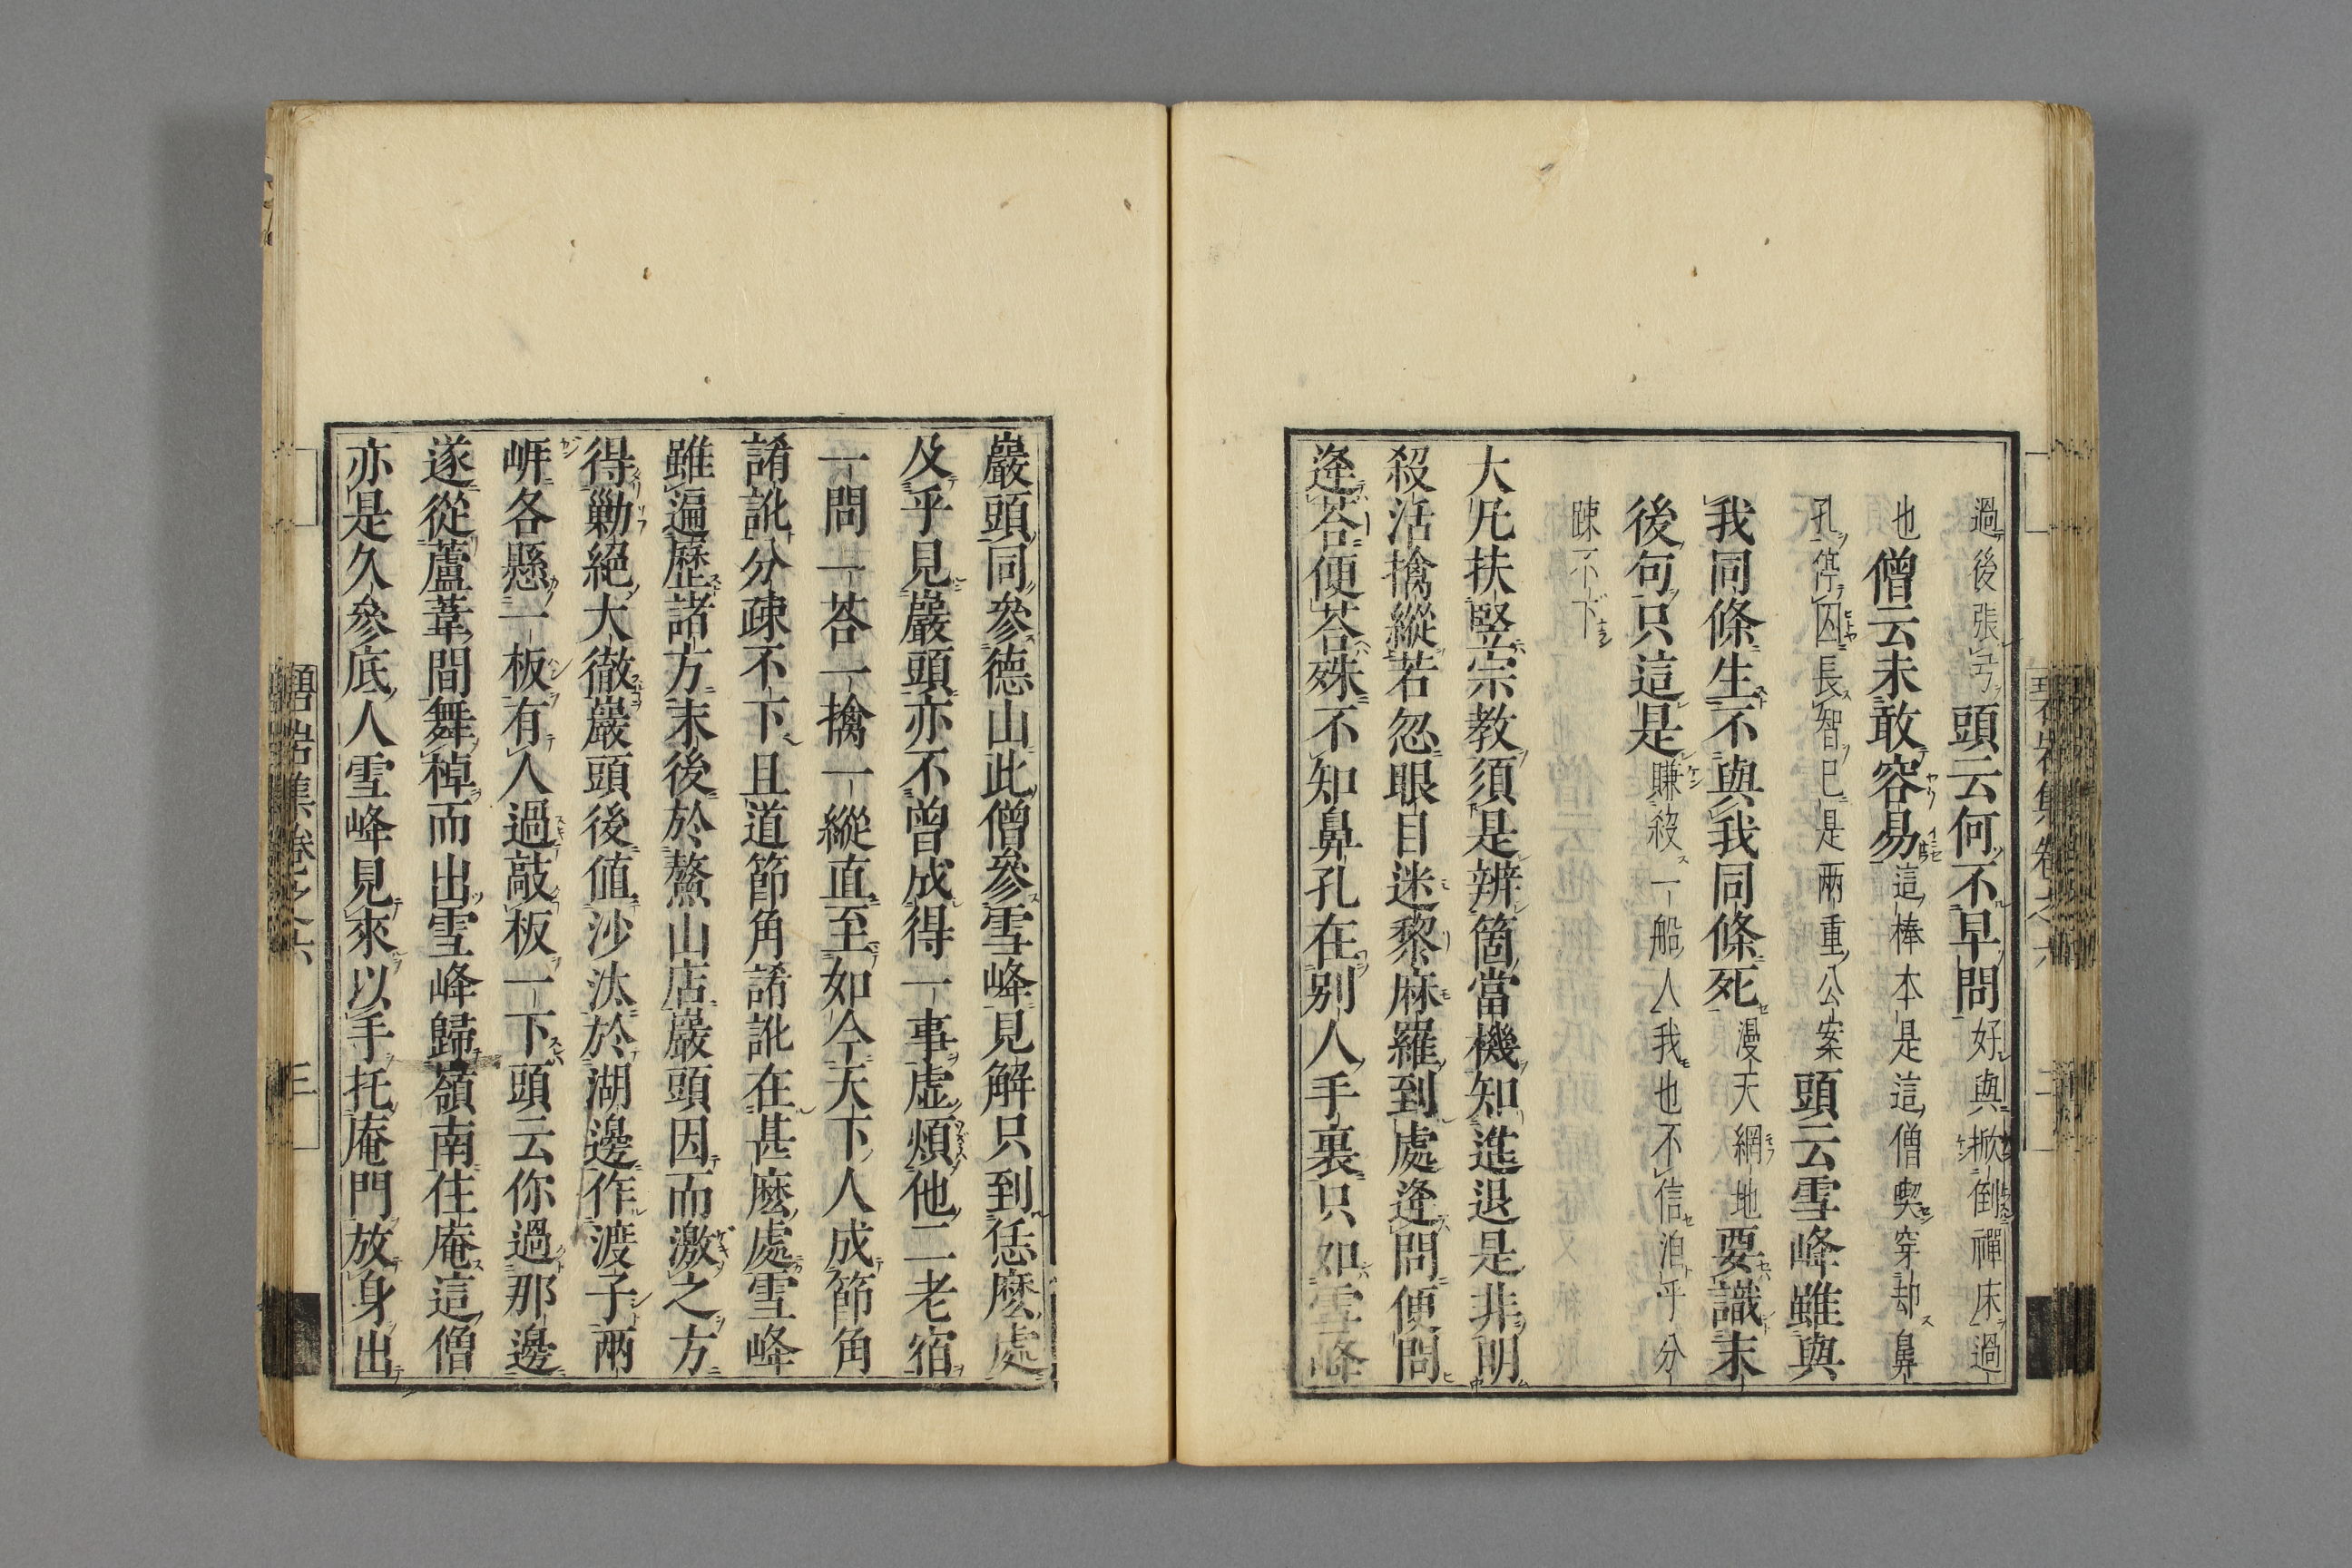 過後張弓頭云何不早問好與掀倒禪床過
也僧云未敢容易這棒本是這僧喫穿却鼻
孔停囚長智已是兩重公案頭云雪峰雖與
我同條生不與我同條死漫天網地要識末
後句只這是賺殺一船人我也不信洎乎分
踈不下
大凡扶竪宗教須是辨箇當機知進退是非明
殺活擒縱若忽眼目迷黎麻羅到處逢問便問
逢荅便荅殊不知鼻孔在別人手裏只如雪峰
巖頭同參德山此僧參雪峰見解只到恁麽處
及乎見巖頭亦不曾成得一事虛煩他二老宿
一問一荅一擒一縱直至如今天下人成節角
誵訛分踈不下且道節角誵訛在甚麽處雪峰
雖遍歷諸方末後於鰲山店巖頭因而激之方
得勦絕大徹巖頭後値沙汰於湖邊作渡子兩
岍各懸一板有人過敲板一下頭云你過那邊
遂從蘆葦間舞棹而出雪峰歸嶺南住庵這僧
亦是久參底人雪峰見來以手托庵門放身出
碧岩集卷之六 三